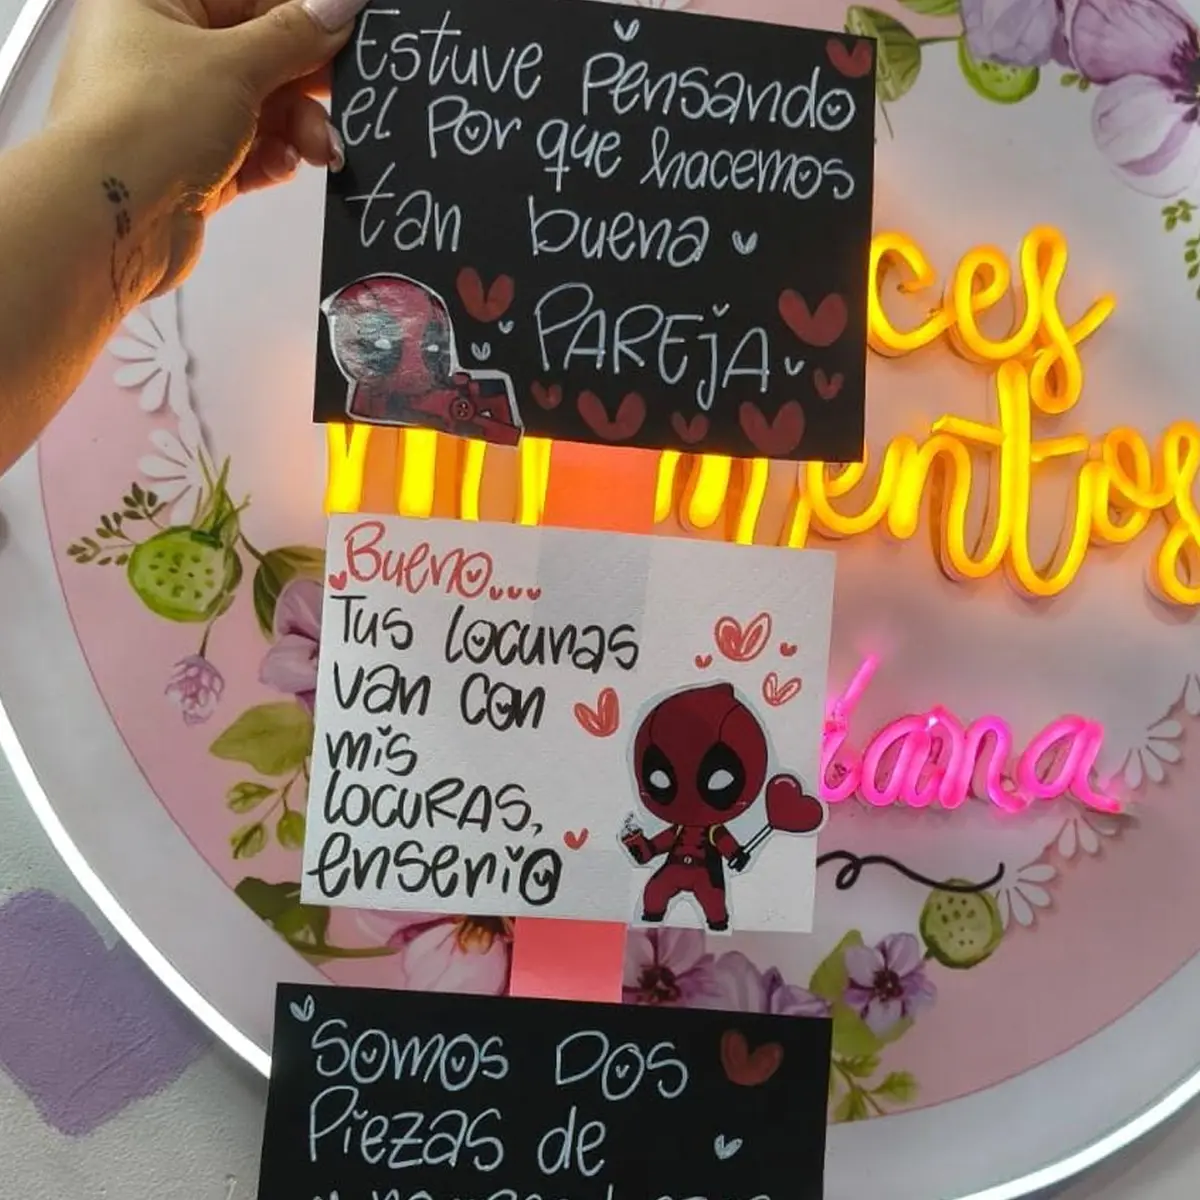 Estuve pensando
el por que hacemos
tan buena
PAREJA
Bueno...
Tus locuras
van con
mis
locuras,
enserio
Somos Dos
Piezas de